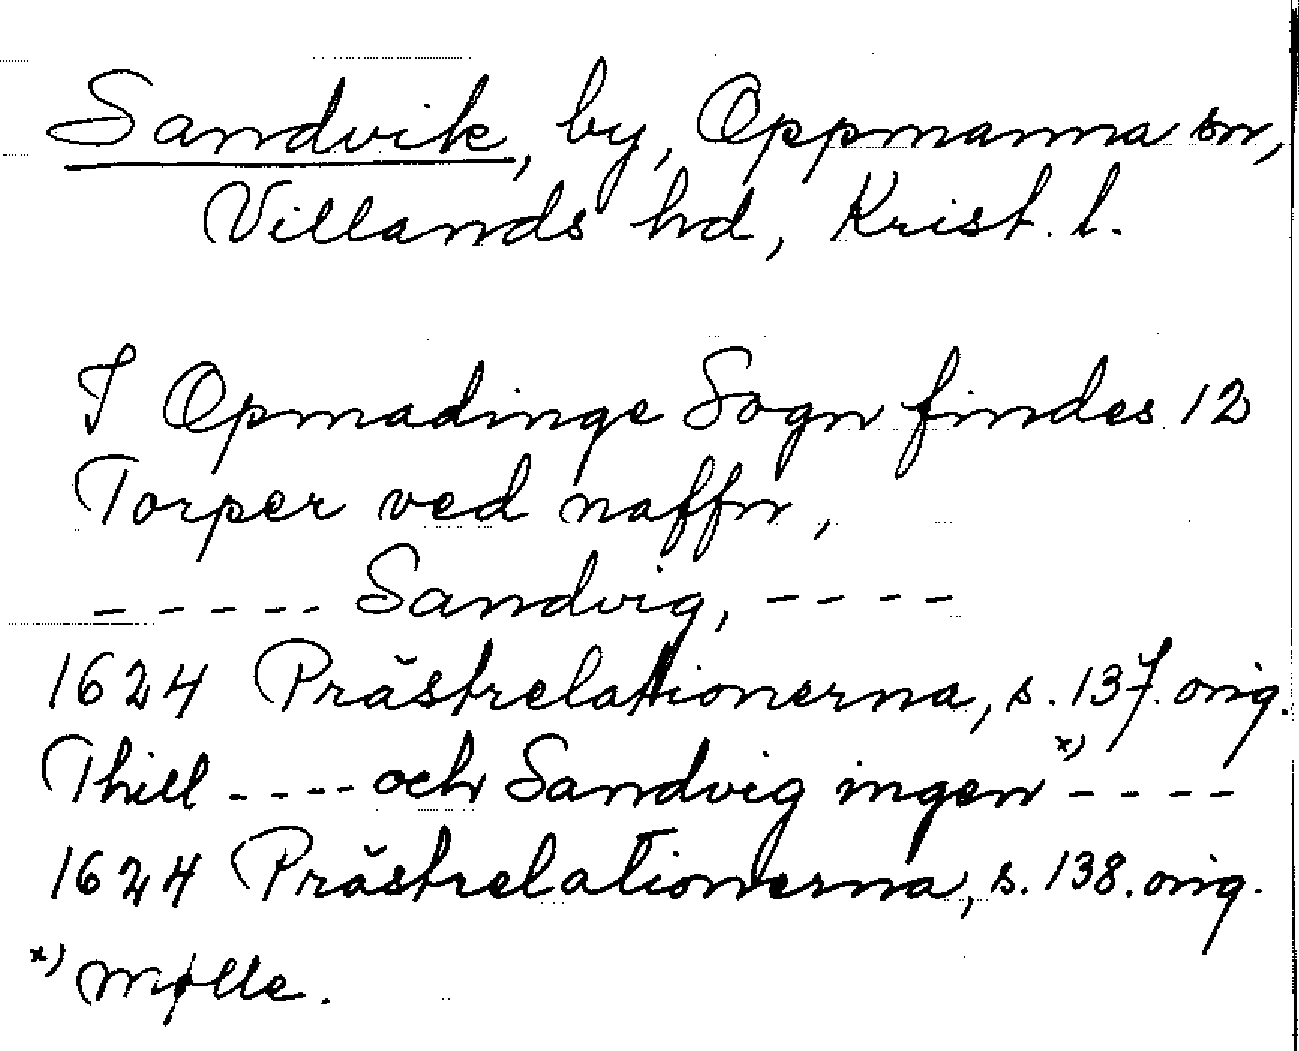 Sandvik, by, Oppmanna sn,
Villands hd, Krist. l.
I Opmadinge Sogn findes 12
Torper ved naffn,
----- Sandvig, ----
1624 Prästrelationerna, s. 137. orig.
Thill ---- och Sandvig ingen x) ----
1624 Prästrelationerna, s. 138. orig.
x) Mølle.